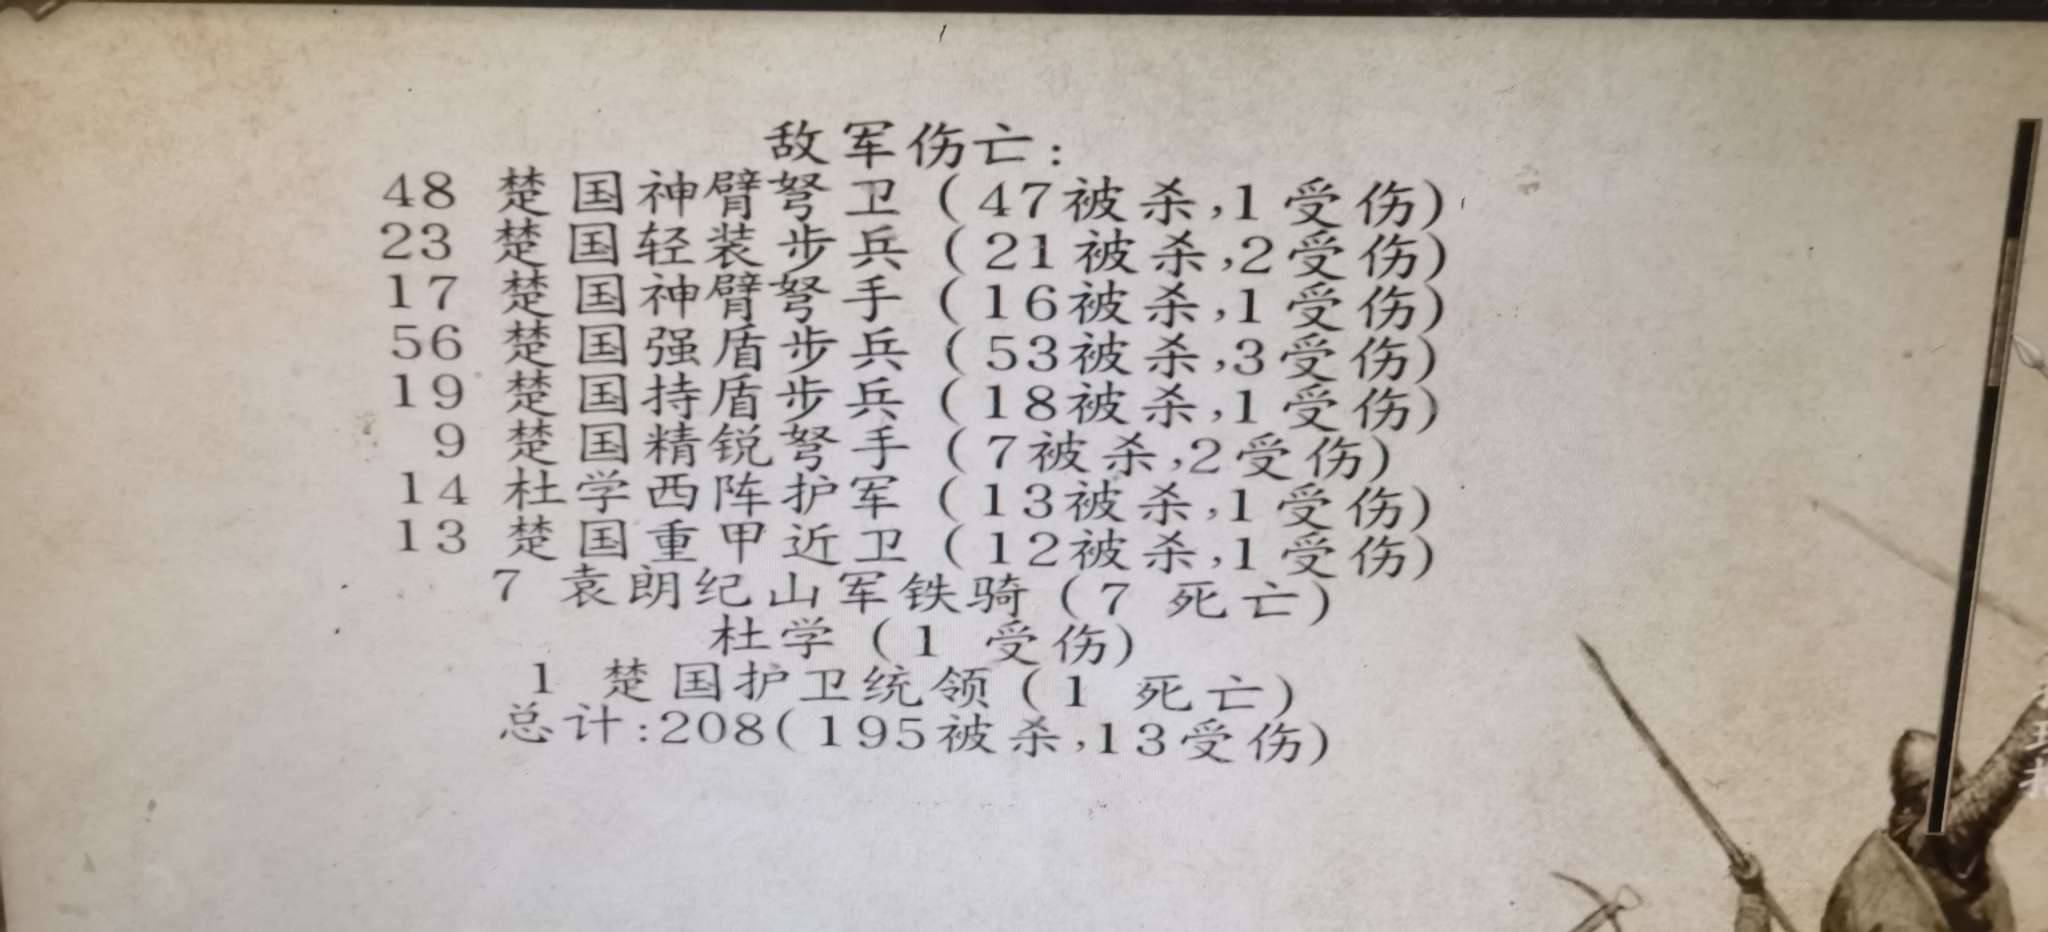 敌军伤亡:
48 楚国神臂弩卫 (47被杀,1 受伤)
23 楚国轻装步兵 (21被杀,2受伤)
17 楚国神臂弩手 (16被杀,1 受伤)
56 楚国强盾步兵 (53被杀,3受伤)
19 楚国持盾步兵 (18被杀,1 受伤)
9 楚国精锐弩手 (7被杀,2受伤)
14 杜学西阵护军 (13被杀,1 受伤)
13 楚国重甲近卫 (12被杀,1 受伤)
7 袁朗纪山军铁骑 (7 死亡)
杜学 (1 受伤)
1 楚国护卫统领 (1 死亡)
总计:208(195被杀,13受伤)